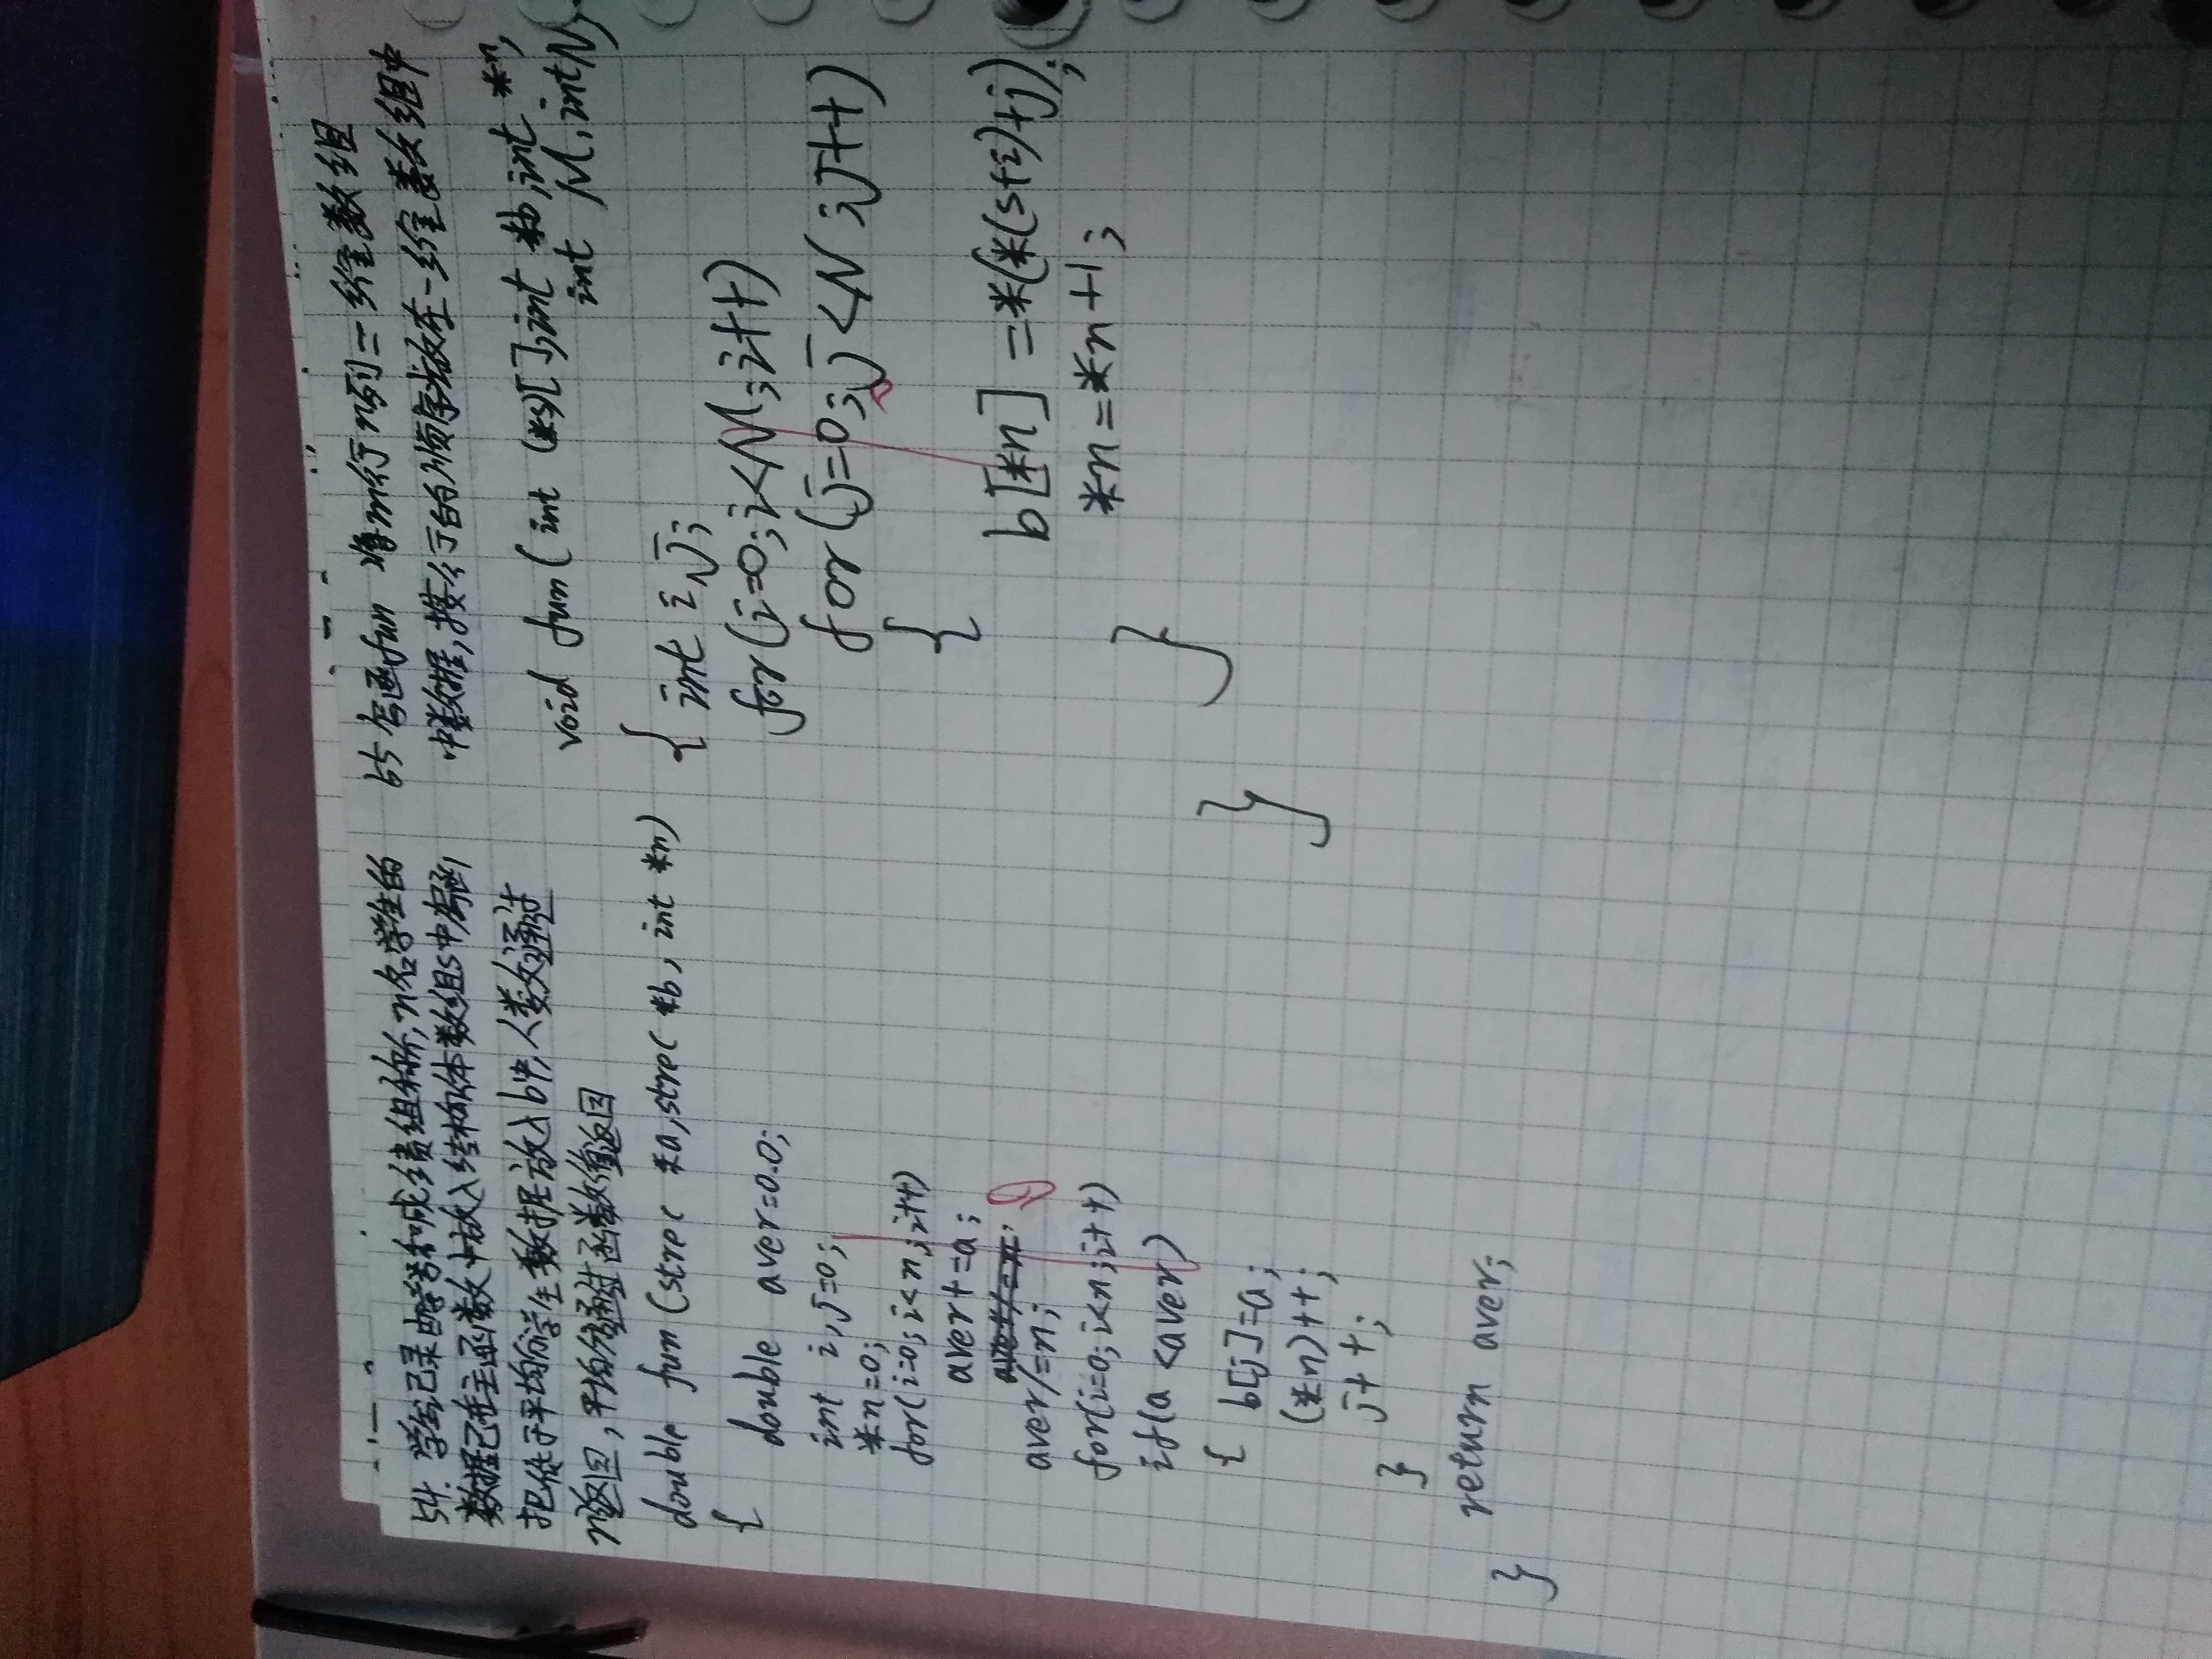 54. 学生记录由学号和成绩组称, n名学生的
数据已在主函数中放入结构体数组s中
把低于平均分学生数据放入b中, 人数通过
n返回, 平均分通过函数值返回
double fun(strec *a, strec *b, int *n)
{
double aver=0.0;
int i,j=0;
*n=0;
for(i=0;i<n;i++)
aver+=a;
aver/=n;
for(i=0;i<n;i++)
if(a<aver)
{ b[j]=a;
(*n)++;
j++;
}
return aver;
}
55 写函fun 将m行n列二维数组
中数据, 按行的顺序放在一维数组中
void fun(int (*s)[],int *b,int *n,
int M,int N)
{ int i,j;
for(i=0;i<M;i++)
for(j=0;j<N;j++)
{
b[*n]=*(*(s+i)+j);
*n=*n+1;
}
}